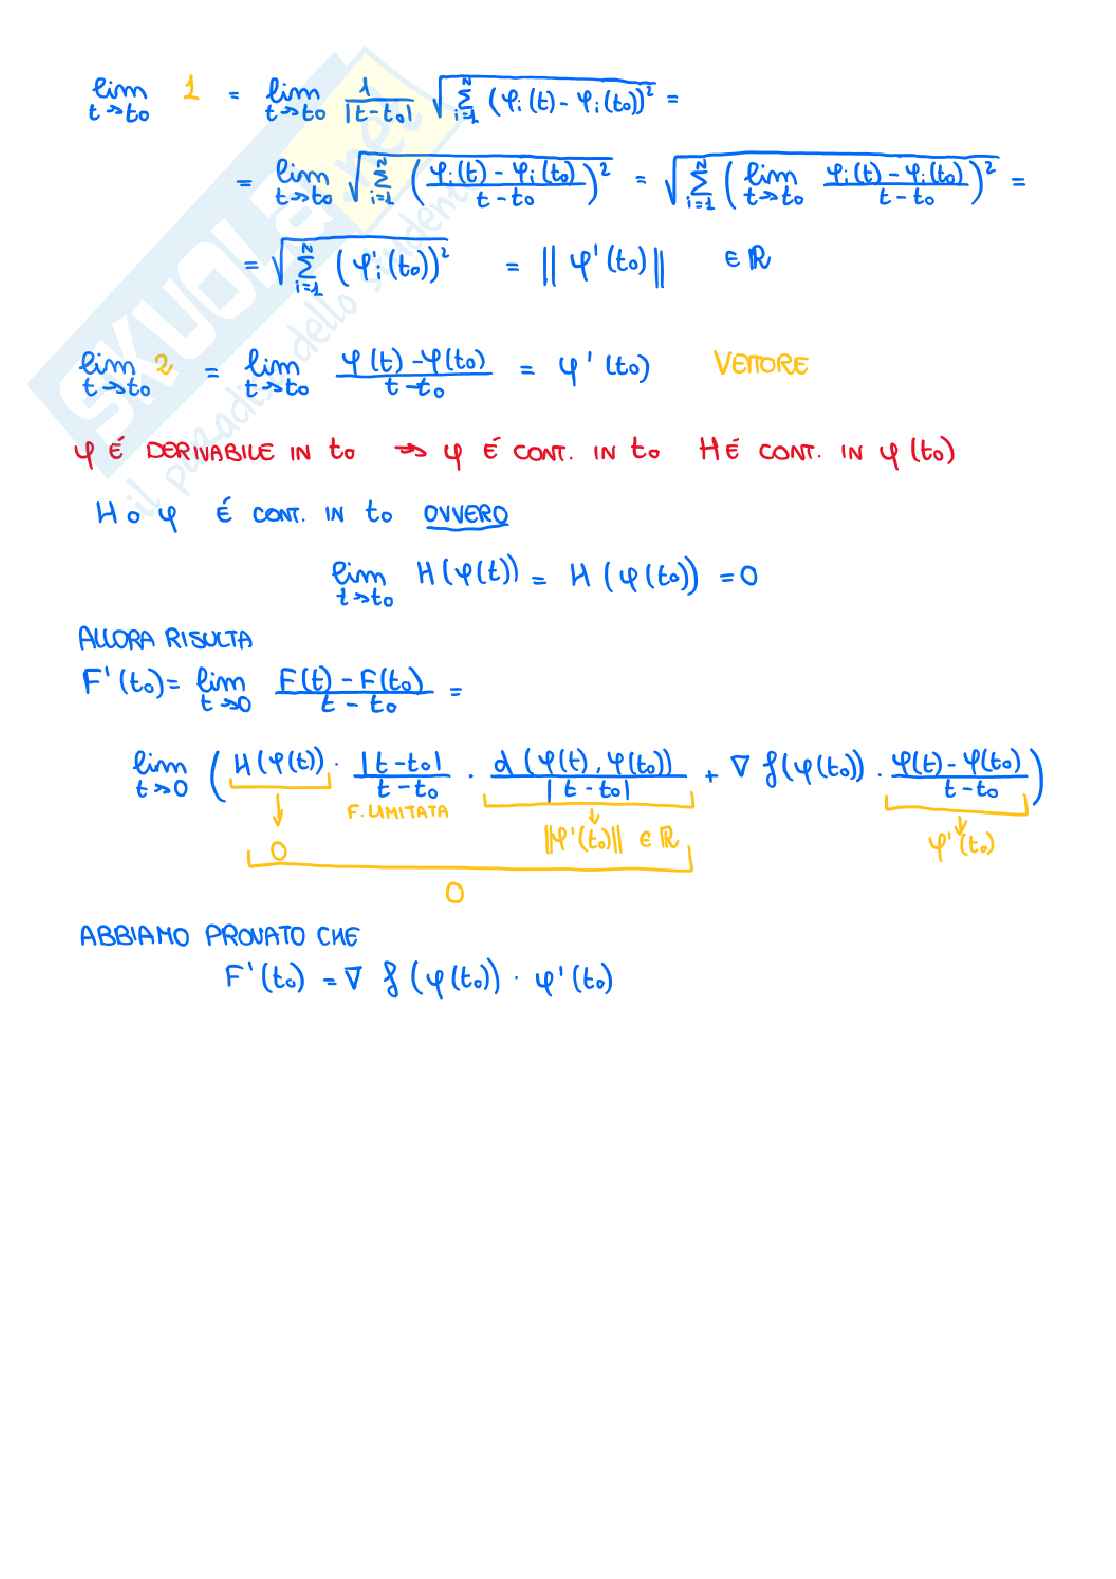 lim t→t₀ 1 = lim t→t₀ 1/|t-t₀| √(Σ i=1 N (φᵢ(t) - φᵢ(t₀))²) =
= lim t→t₀ √(Σ i=1 N ((φᵢ(t) - φᵢ(t₀))/(t-t₀))²) = √(Σ i=1 N (lim t→t₀ (φᵢ(t) - φᵢ(t₀))/(t-t₀))²) =
= √(Σ i=1 N (φ'ᵢ(t₀))²) = || φ'(t₀) || ∈ ℝ
lim t→t₀ 2 = lim t→t₀ (φ(t) - φ(t₀))/(t-t₀) = φ'(t₀) VETTORE
φ É DERIVABILE IN t₀ → φ É CONT. IN t₀ H É CONT. IN φ(t₀)
H o φ É CONT. IN t₀ OVVERO
lim t→t₀ H(φ(t)) = H(φ(t₀)) = 0
ALLORA RISULTA
F'(t₀) = lim t→0 (F(t) - F(t₀))/(t - t₀) =
lim t→0 ( H(φ(t)) · |t-t₀|/(t-t₀) · d(φ(t), φ(t₀))/|t-t₀| + ∇ f(φ(t₀)) · (φ(t) - φ(t₀))/(t-t₀) )
F. LIMITATA
0 ||φ'(t₀)|| ∈ ℝ φ'(t₀)
0
ABBIAMO PROVATO CHE
F'(t₀) = ∇ f(φ(t₀)) · φ'(t₀)
SKUOLA.net
il paradiso dello studente